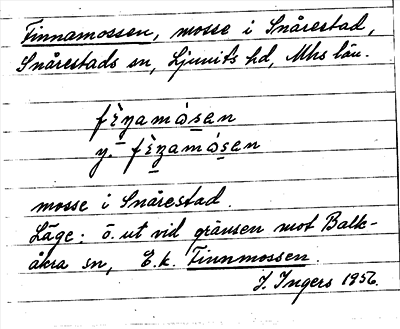 Finnamossen, mosse i Snårestad,
Snårestads sn, Ljunits hd, Mhs län.
fìnamósen
y. fìnamósen
mosse i Snårestad.
Läge: ö. ut vid gränsen mot Balk-
åkra sn, E.k. Finnmossen.
I. Ingers 1956.